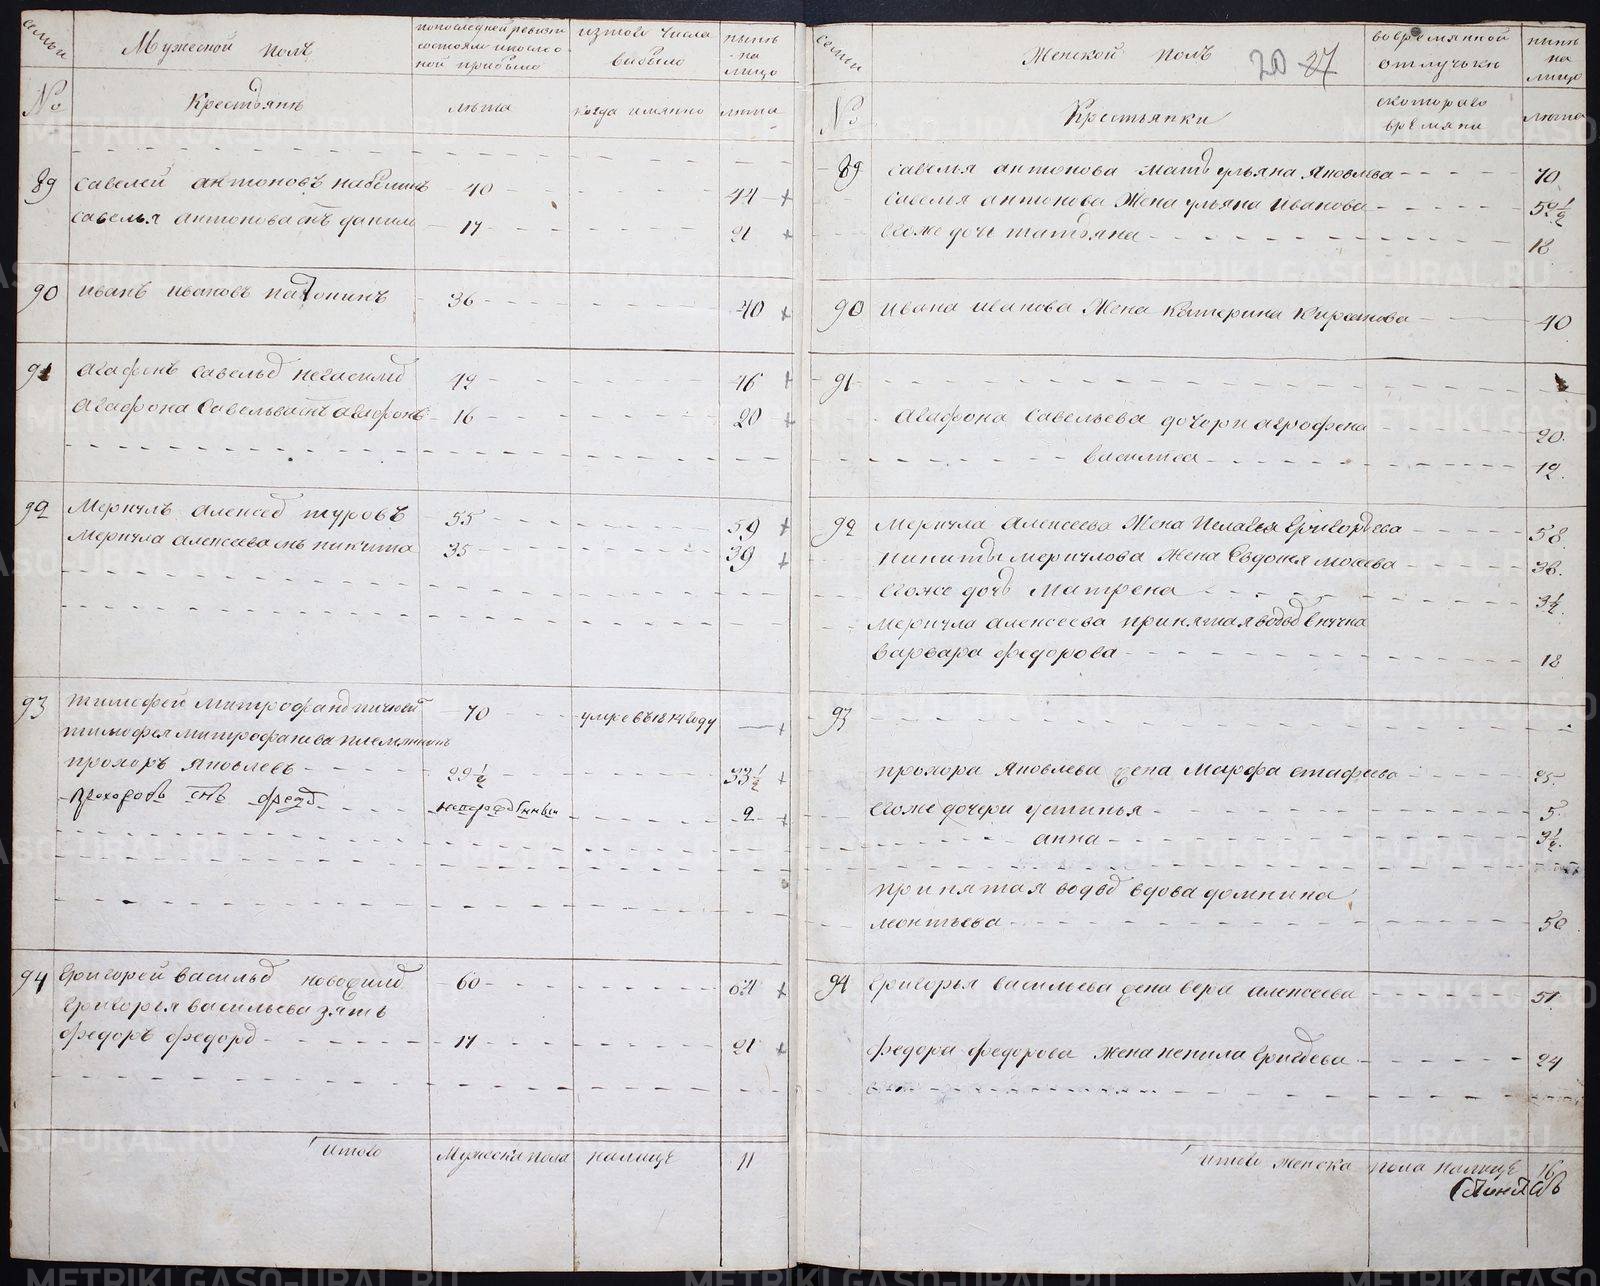 семьи
Мужеской полъ
попоследней ревизи
состояло ипосле о
ной прибыло
изтого числа
выбыло
нынѣ
на
лицо
№
Крестьянъ
лѣта
когда имянно
лѣта
89 савелей антоновъ 40 44
савелья антонова снъ данило 17 21
90 иванъ ивановъ 36 40
91 агафонъ савельев 42 46
агафона савельева снъ агафонъ 16 20
92 Меркулъ алексеев туровъ 55 59
меркула алексеева снъ никита 35 39
93 тимофей митрофанов 70 умре въ 1814 году
тимофея митрофанова племянникъ
прохоръ яковлевъ 29 1/2 33 1/2
прохоровъ снъ 2
94 григорей васильев 60 64
григорья васильева зять
федоръ федоров 17 21
итого Мужеска пола налицо 11
семьи
Женской полъ
20 37
вовремянной
отлучьке
нынѣ
на
лицо
№
Крестьянки
скоторого
времяни
лѣта
89 савелья антонова мать ульяна яковлева 70
савелья антонова Жена ульяна иванова 52 1/2
егоже дочь татьяна 18
90 ивана иванова Жена катерина 40
91
агафона савельева дочери агрофена 20
василиса 12
92 меркула алексеева Жена пелагея григорьева 58
никиты меркулова жена Евдокея 38
егоже дочь матрена 3 1/2
меркула алексеева принятая внучка
варвара федорова 18
93
прохора яковлева жена марфа 25
егоже дочери устинья 5
анна 3 1/2
принятая вдова домнина
леонтьева 50
94 григорья васильева жена вера алексеева 51
федора федорова жена ненила 24
итого женска пола налицо 16